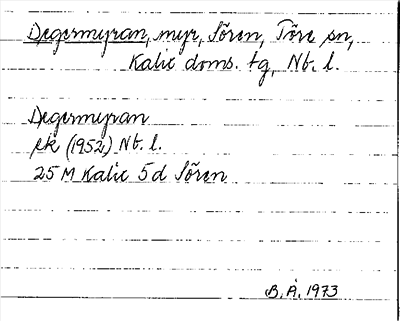 Degermyran, myr, Sören, Töre sn,
Kalix doms. tg, Nb. l.
Degermyran
ek (1952) Nb. l.
25 M Kalix 5 d Sören
B. Å. 1973